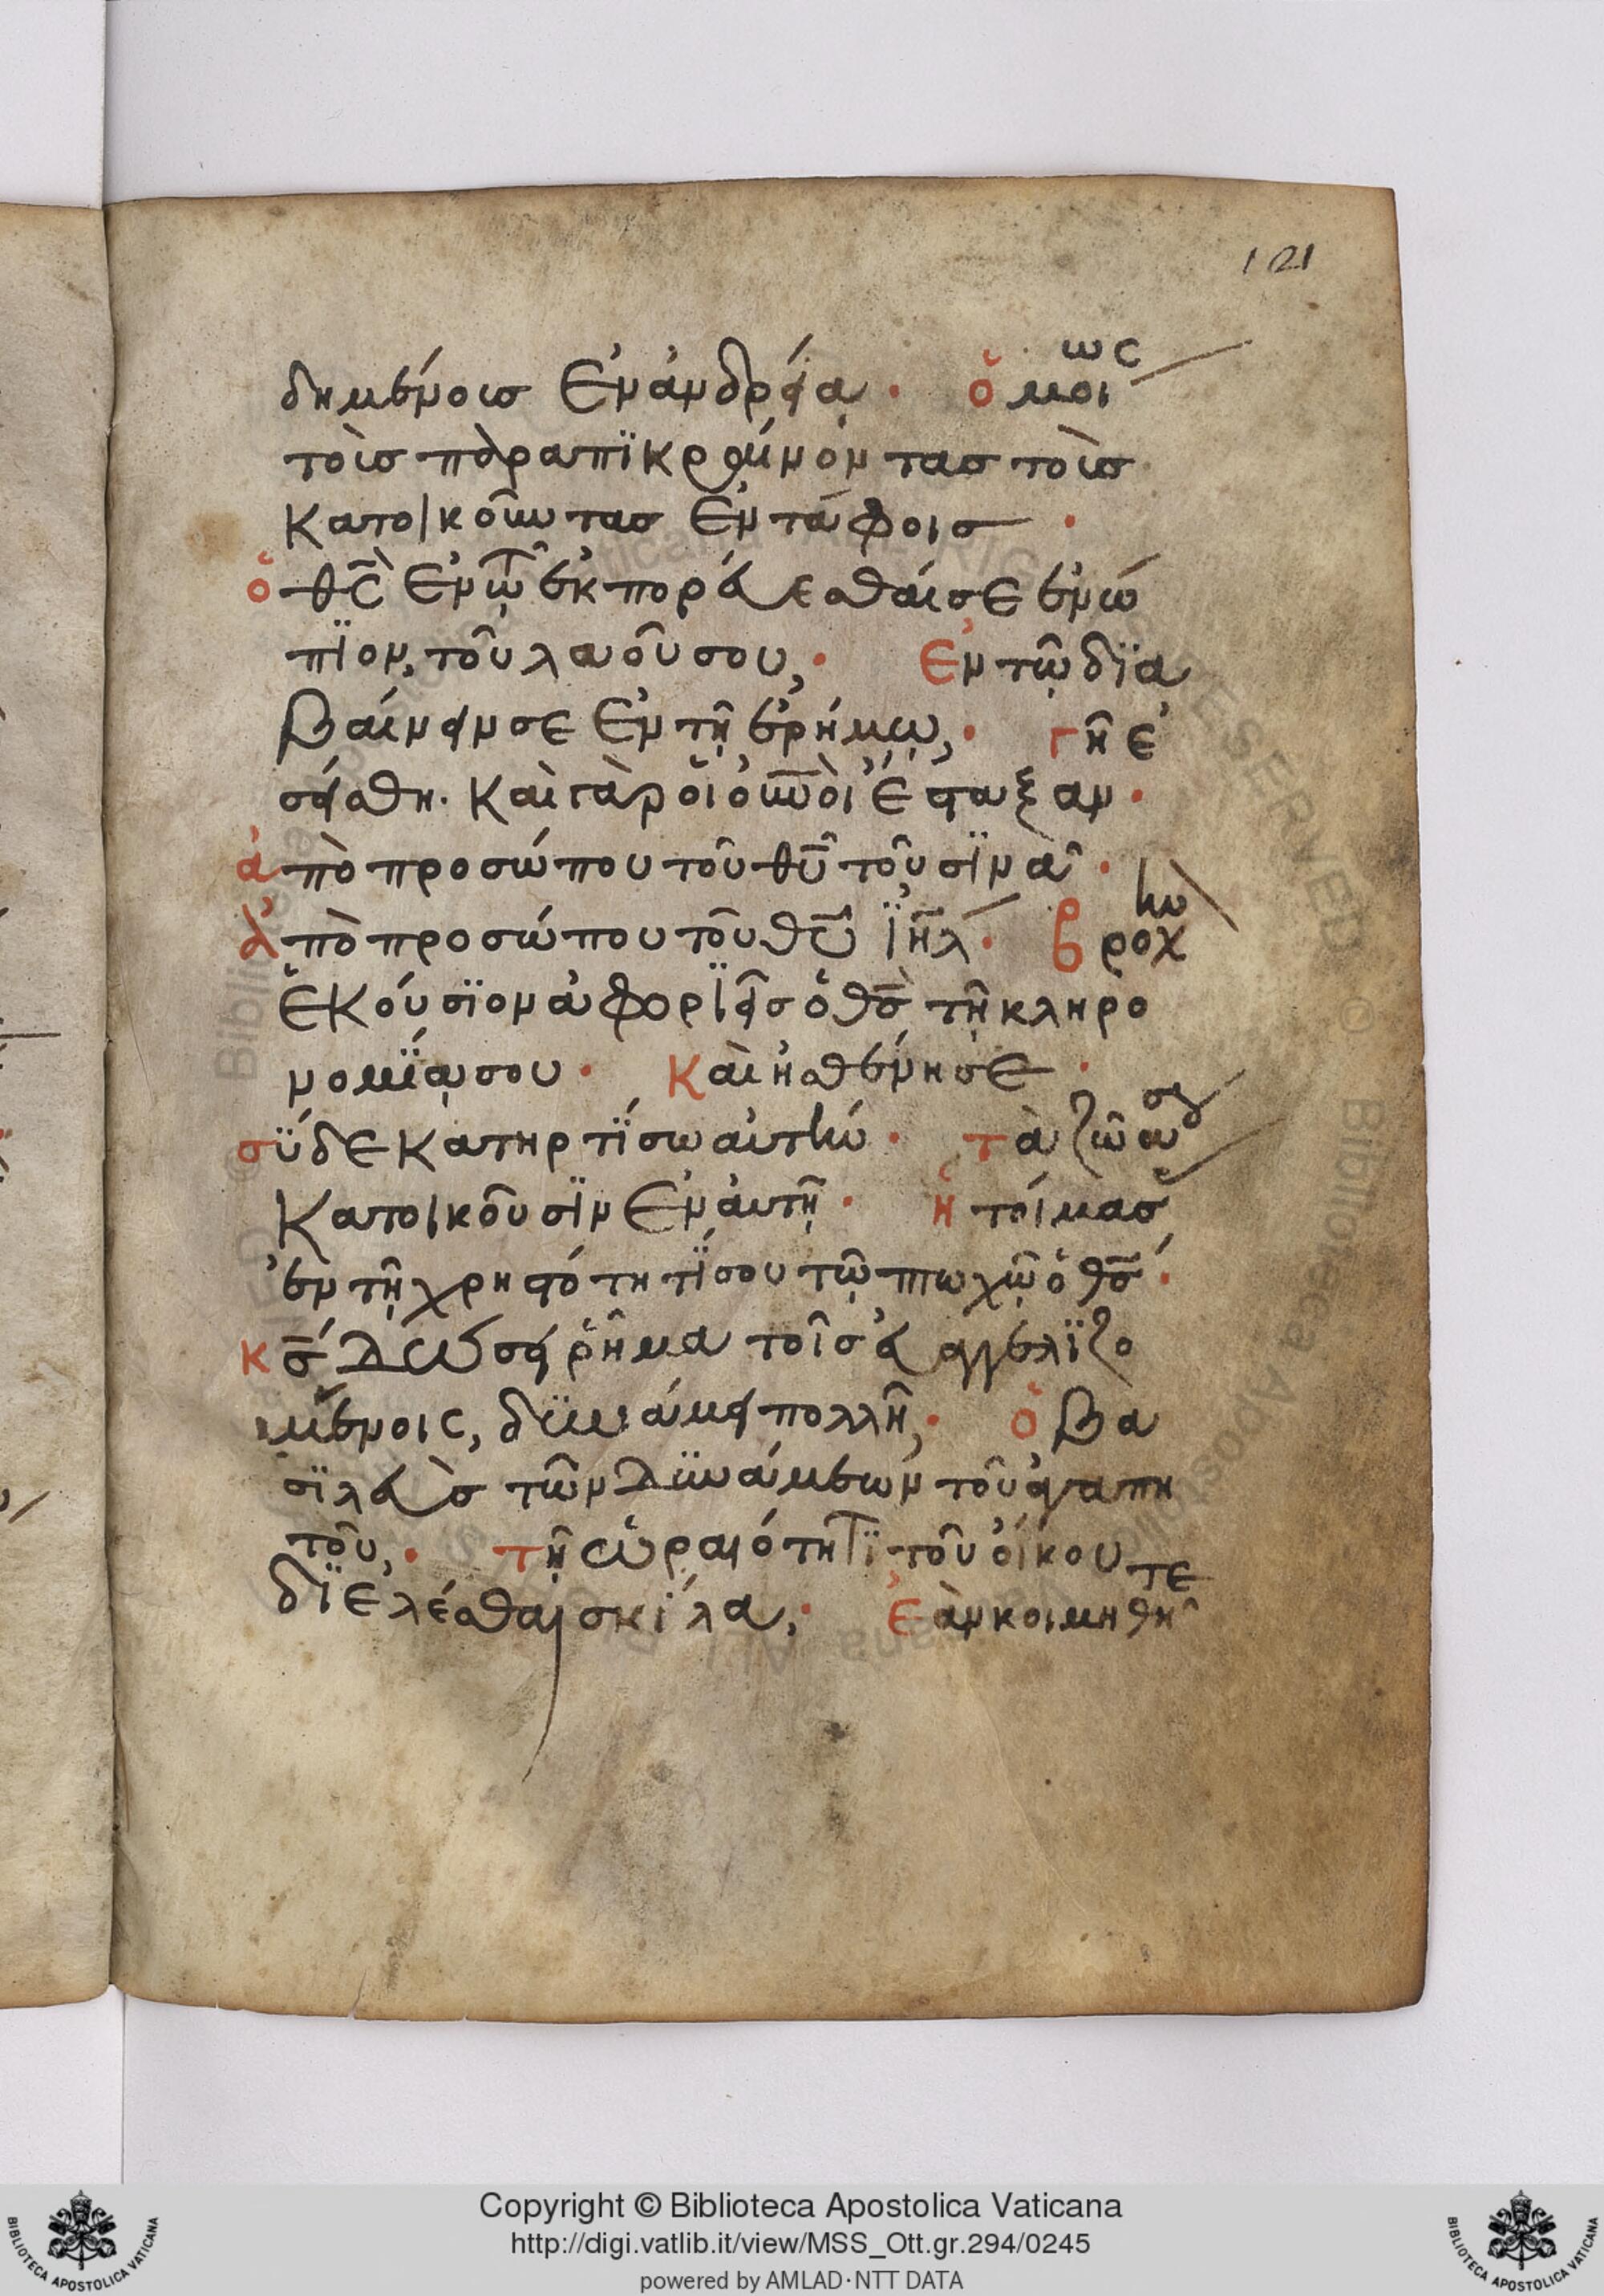 121
δημένοισ ἐν ἀνδρεία· ὁμοίως
τοὶσ παραπϊκραίνον τασ τοὺσ
κατοικοῦντασ ἐν τάφοισ·
ὁ θς̄ ἐν τῶ ἐκπορεύεσθαί σε ἐνώ
πϊον, τοῦ λαοῦ σου,· ἐν τῶ δϊα
βαίνειν σε ἐν τῆ ἐρήμω,· γῆ ἐ
σείσθη· καὶ γὰρ οἱ οὐνοὶ ἔσταξαν·
ἀπὸ προσώπου τοῦ θυ τοῦ σϊνὰ·
ἀπὸ προσώπου τοῦ θυ ϊηλ· βροχὴν
ἑκούσϊον ἀφορϊεῖσ ὁ θσ τῆ κληρο
νομΐα σου· καὶ ἠσθένησε·
σὺ δὲ κατηρτΐσω αὐτήν· τὰ ζῶα σου
κατοικοῦσϊν ἐν αὐτῆ· ἡτοίμασασ
ἐν τῆ χρηστότητΐ σου τῶ πτωχῶ ὁ θσ·
κσ δώσει ῥῆμα τοῖσ εὐαγγελϊζο
μένοις, δϋνάμει πολλῆ,· ὁ βα
σϊλεὺσ τῶν δϋνάμεων τοῦ ἀγαπη
τοῦ,· τῆ ὡραιότητϊ τοῦ οἴκου
δϊελέσθαι σκῦλα,· ἐὰν κοιμηθῆτε
Copyright © Biblioteca Apostolica Vaticana
http://digi.vatlib.it/view/MSS_Ott.gr.294/0245
powered by AMLAD·NTT DATA
BIBLIOTECA APOSTOLICA VATICANA
BIBLIOTECA APOSTOLICA VATICANA